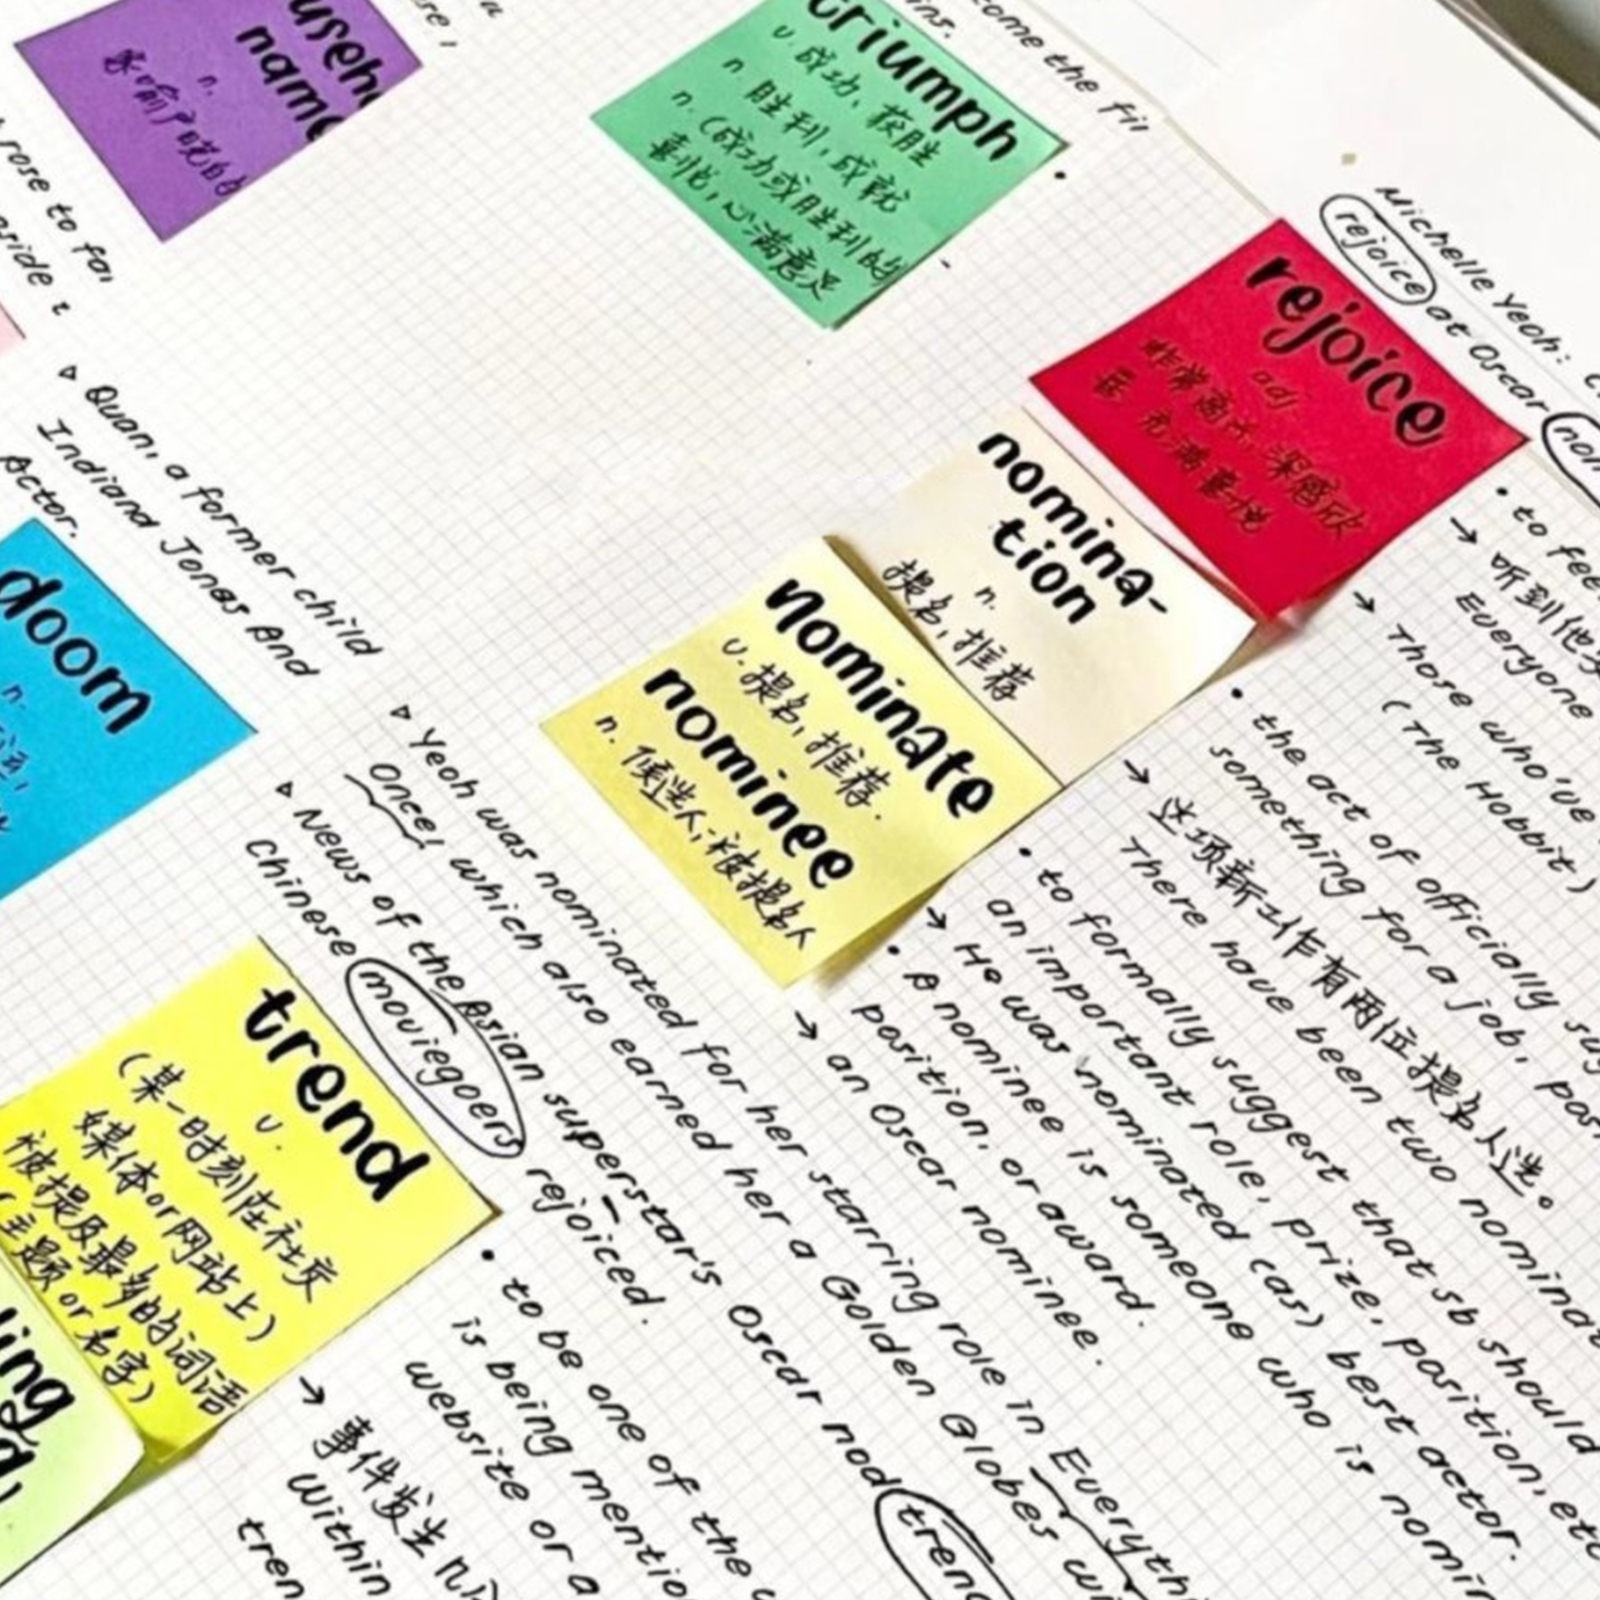 Michelle Yeoh:
rejoice at Oscar
rejoice
adj
非常高兴,深感欣
喜,充满喜悦
to feel
听到他
Everyone
Those who've
(The Hobbit)
nomina-
tion
n.
提名,推荐
the act of officially
something for a job, pos
这项新工作有两位提名人选。
There have been two nomina
Nominate
v. 提名,推荐.
nominee
n. 候选人;被提名人
to formally suggest that sb should
an important role, prize, position, etc
He was nominated (as) best actor.
A nominee is someone who is nomin
position, or award.
an Oscar nominee.
triumph
v. 成功、获胜
n 胜利,成就
n. (成功或胜利的
喜悦,心满意足
come the fil
useh
name
n.
家喻户晓的
rose to fa
Quan, a former child
Indiana Jones And
Actor.
doom
n.
Yeoh was nominated for her starring role in Everythi
Once, which also earned her a Golden Globes wi
News of the Asian superstar's Oscar nod trend
Chinese moviegoers rejoiced.
trend
v.
(某一时刻在社交
媒体or网站上)
被提及最多的词语
(主题or名字)
to be one of the
is being mentio
website or a
事件发生几
Within
tren
ling